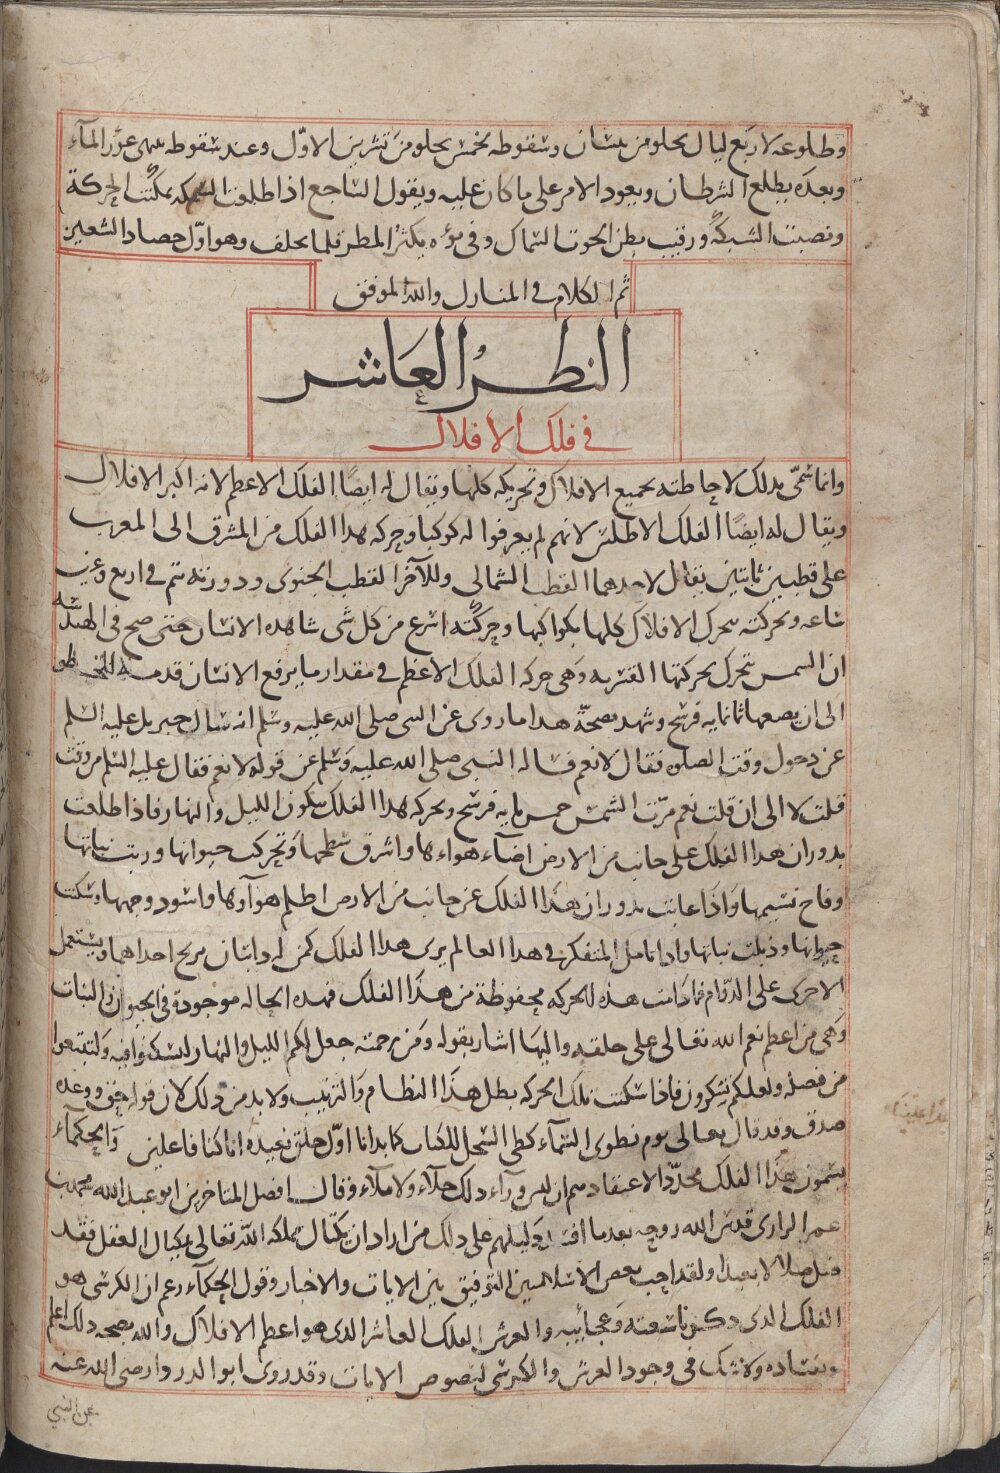 وطلوعه لاربع ليال يخلو من نيسان وسقوطه لخمس يخلو من تشرين الاول وعند سقوطه ينتهى غور المآء
وبعده يطلع الشرطان ويعود الامر على ما كان عليه ويقول الساجع اذا طلعت السمكه امكنت الحركة
ونصبت الشبكة ورقيب بطن الحوت السماك وفى نوءه يكثر المطر قلما يخلف وهو اول حصاد الشعير
تم الكلام فى المنازل والله الموفق
النظر العاشر
فى فلك الافلاك
وانما سمى بذلك لاحاطته بجميع الافلاك وتحريكه كلها ويقال له ايضًا الفلك الاعظم لانه اكبر الافلاك
ويقال له ايضًا الفلك الاطلس لانهم لم يعرفوا له كوكبا وحركه هذا الفلك من المشرق الى المغرب
على قطبين ثابتين يقال لاحدهما القطب الشمالى وللآخر القطب الجنوبى ودورته تتم فى اربع وعشرين
ساعه وبحركته يتحرك الافلاك كلها بكواكبها وحركته اسرع من كل شى شاهده الانسان حتى صح فى الهندسه
ان الشمس تتحرك بحركتها القسريه وهى حركه الفلك الاعظم فى مقدار ما يرفع الانسان قدمه للخطو
الى ان يضعها ثمانمايه فرسخ وشهد بصحة هذا ما روى عن النبى صلى الله عليه وسلم انه سال جبريل عليه السلم
عن دخول وقت الصلوه فقال لا نعم فساله النبى صلى الله عليه وسلم عن قوله لا نعم فقال عليه السلم من وقت
قلت لا الى ان قلت نعم مرّت الشمس خمس مايه فرسخ وبحركه هذا الفلك يكون الليل والنهار فاذا طلعت
بدوران هذا الفلك على جانب من الارض اضآء هواءها واشرق سطحها وتحركت حيوانها وربت نباتها
وفاح نسيمها واذا غابت بدوران هذا الفلك عن جانب من الارض اظلم هوآوها واسود وجهها وسكنت
حيوانها وذبلت نباتها واذا تامل المتفكر فى هذا العالم يرى هذا الفلك كمن له دابتان يريح احداهما ويستعمل
الاخرى على الدوام فما دامت هذه الحركه محفوظة من هذا الفلك فهذه الحاله موجودة فى الحيوان والنبات
وهى من اعظم نعم الله تعالى على خلقه واليها اشار بقوله ومن رحمته جعل لكم الليل والنهار لتسكنوا فيه ولتبتغوا
من فضله ولعلكم تشكرون فاذا سكنت تلك الحركه بطل هذا النظام والترتيب ولا بد من ذلك لان قوله حق ووعده
صدق وقد قال تعالى يوم نطوى السمآء كطى السجل للكتاب كما بدانا اول خلق نعيده انا كنا فاعلين والحكمآء
يسمون هذا الفلك محددًا لاعتقادهم ان ليس ورآء ذلك خلآء ولا ملآء وقال افضل المتاخرين ابو عبد الله محمد بن
عمر الرازى قدس الله روحه بعد ما دليلهم على ذلك من اراد ان يكتال مملكه الله تعالى بمكيال العقل فقد
ضل ضلالا بعيدا ولقد احب بعض الاسلاميين التوفيق بين الايات والاخبار وقول الحكمآء زعم ان الكرسى هو
الفلك الذى وعجائبه والعرش الفلك العاشر الذى هو اعظم الافلاك والله بصحه ذلك اعلم
وفساده ولا شك فى وجود العرش والكرسى لنصوص الايات وقد روى ابو الدردا رضى الله عنه
عن النبى